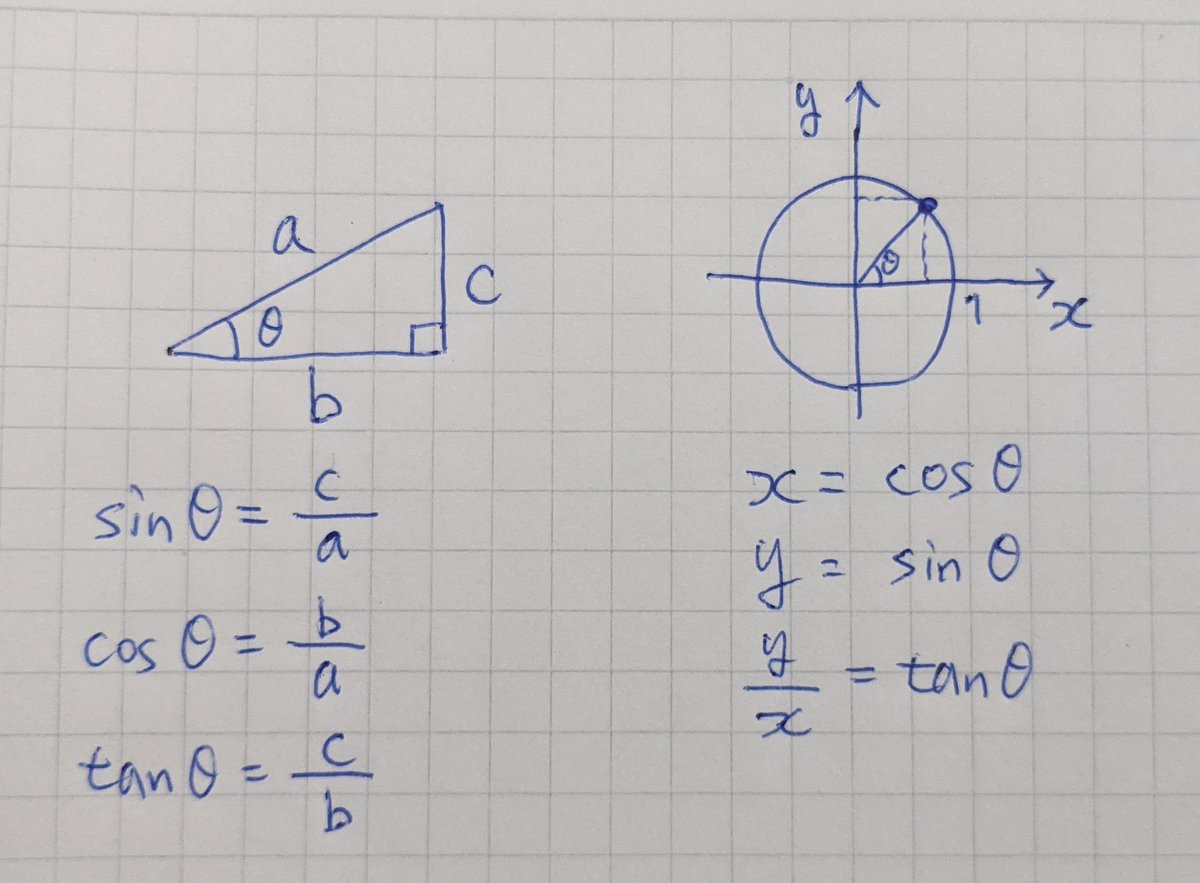 a
c
θ
b
sinθ = c/a
cosθ = b/a
tanθ = c/b
y
θ
1
x
x = cosθ
y = sinθ
y/x = tanθ